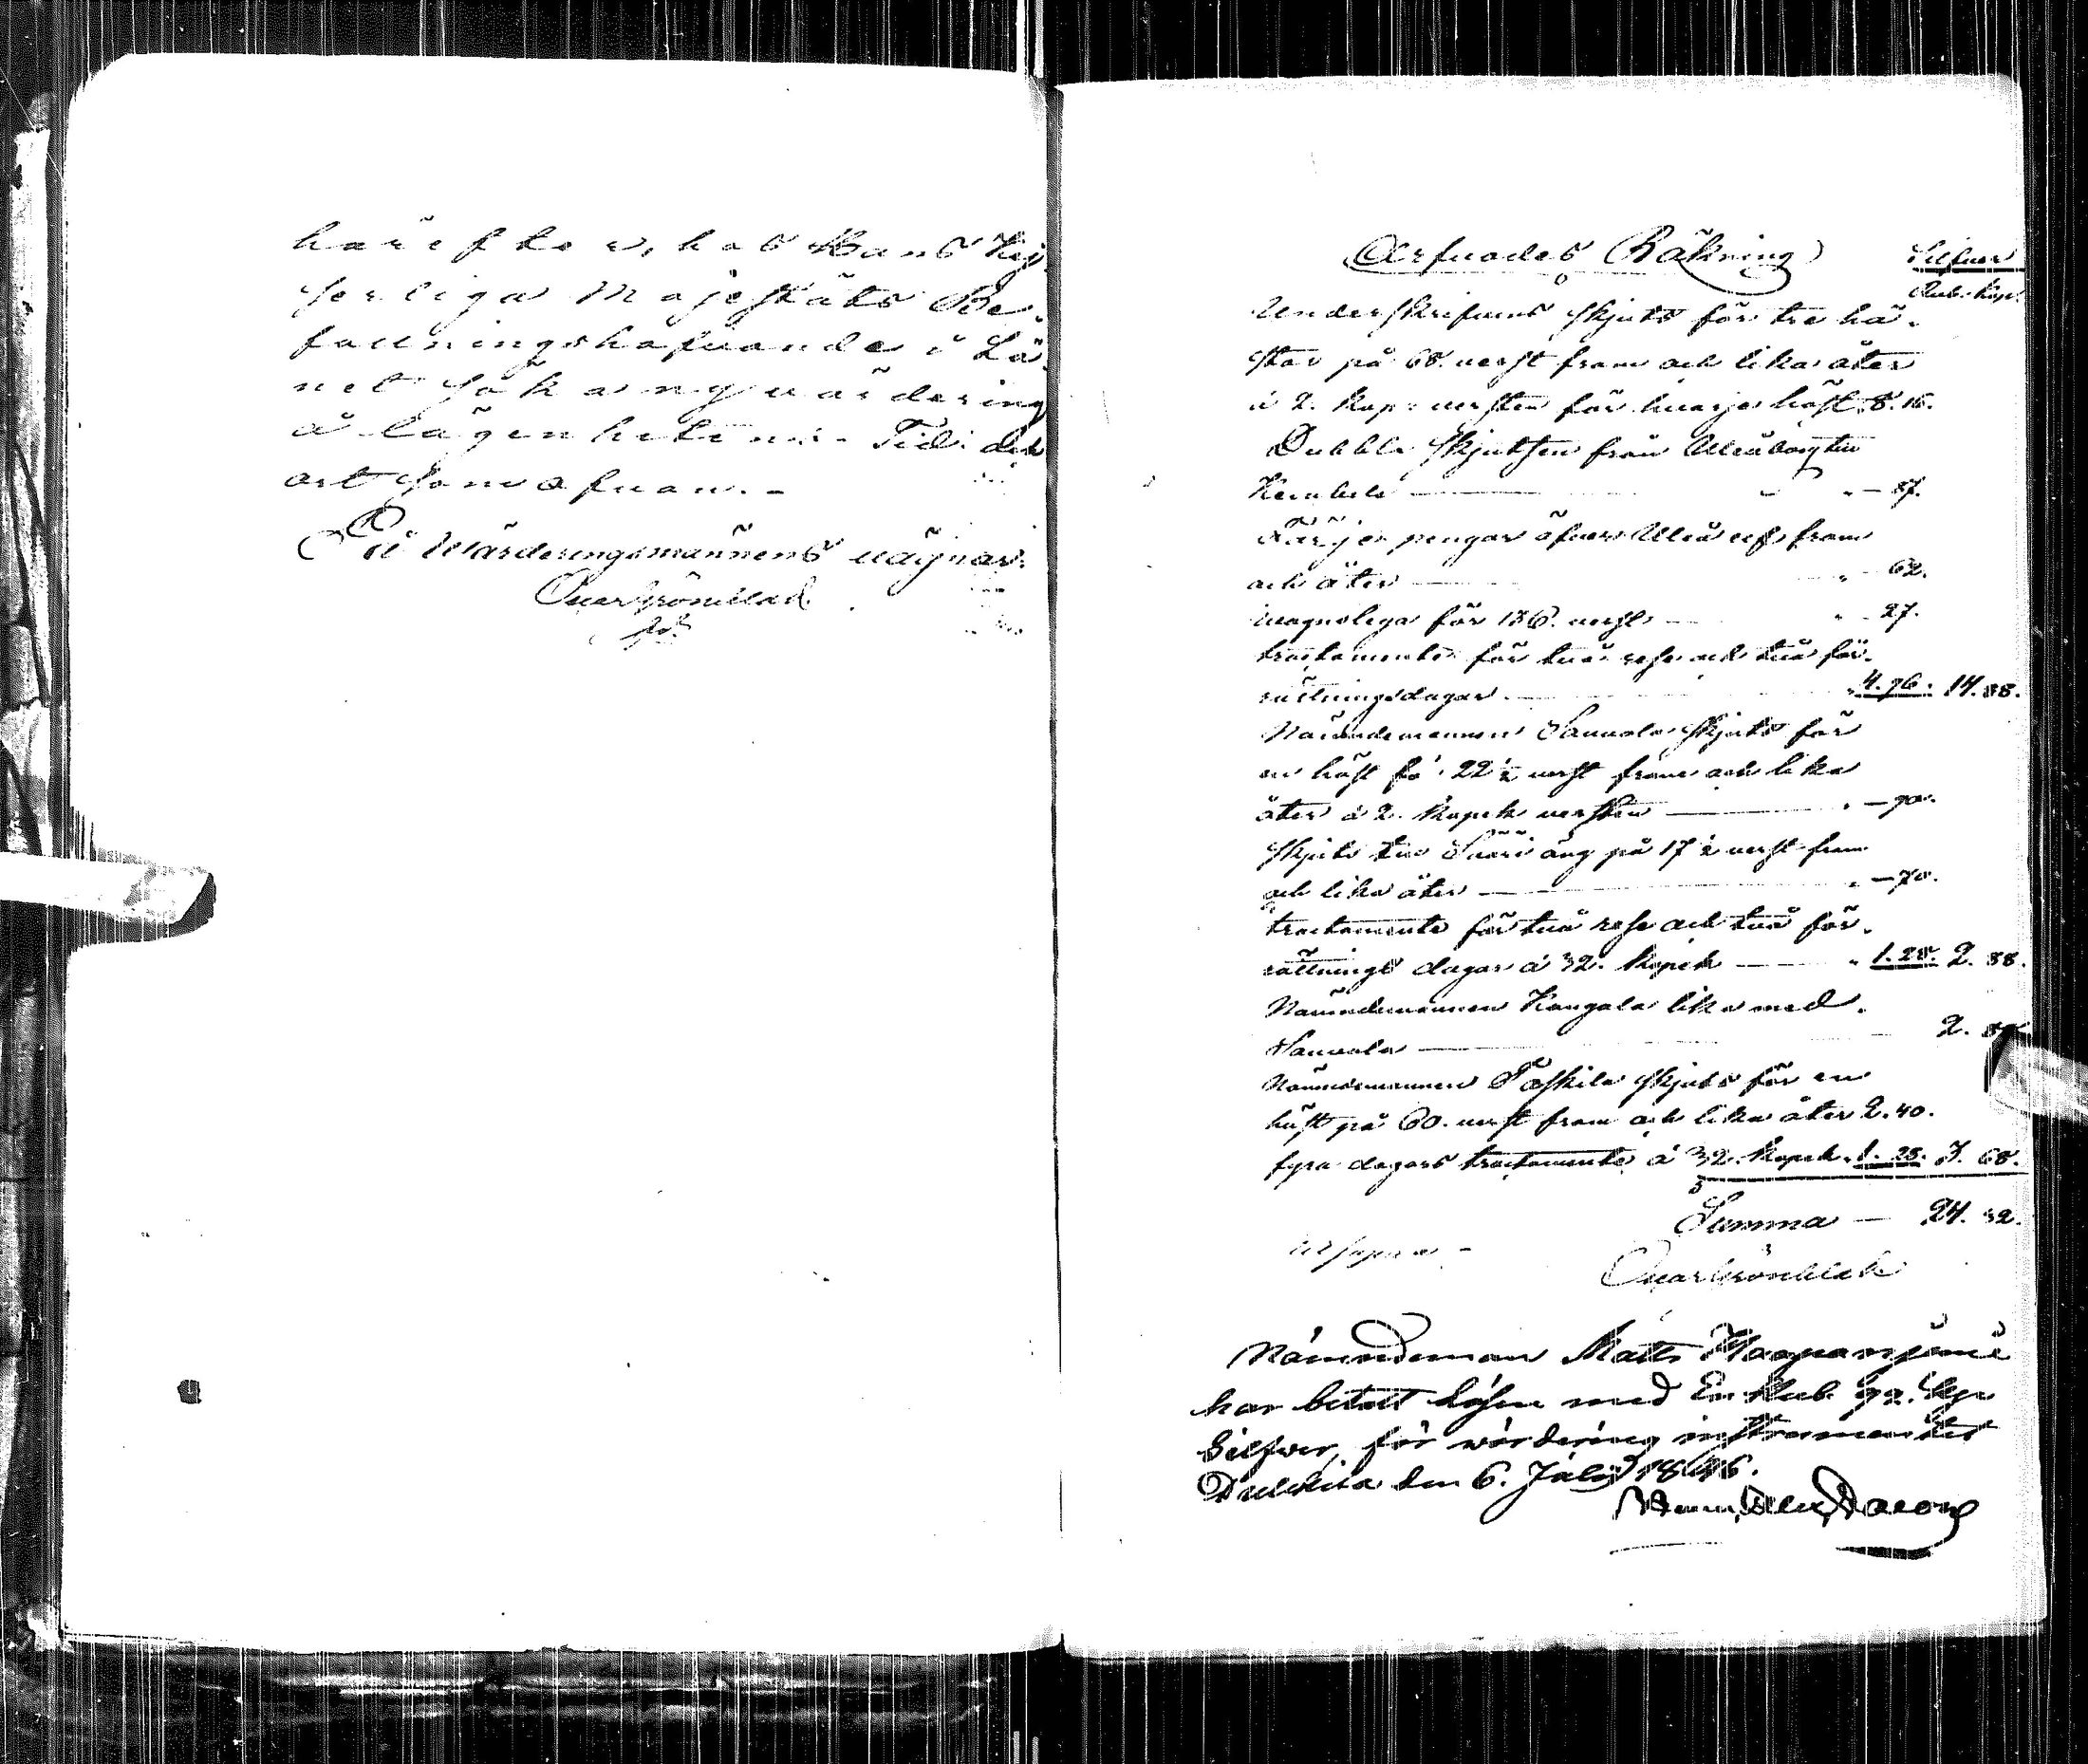 härefter, hos Hans Kej-
serliga Majestäts Be-
fallningshafvande i Lä-
net söka ny värdering
å lägenheten. Tid och
ort som ofvan.-
På Wärderingsmännens vägnar
Ivar Grönblad
Arfvodes Räkning
Silfver
Rub. Kop.
Underskrifvens skjuts för tre hä-
star på 68. verst fram och lika åter
à 2. Kop: versten för hvarje häst 8. 16.
Dubbla skjutsen från Uleåborg till
Kembele — 87.
Färje pengar öfver Uleå elf fram
och åter — 62.
Vagnslega för 136. verst — 27.
tractamente för två rese och två för-
rättningsdagar — 4. 96. 14. 88.
Nämndemannen Sauvola skjuts för
en häst på 22½ verst fram och lika
åter à 2. kopek versten — 90.
skjuts till Saari äng på 17½ verst fram
och lika åter — 70.
tractamente för två rese och två för-
rättnings dagar à 32. Kopek — 1. 28. 2. 88.
Nämndemannen Kangala lika med
Sauvola — 2. 88.
Nämndemannen Paskila skjuts för en
häst på 60. verst fram och lika åter 2. 40.
fyra dagars tractamente à 32. Kopek 1. 28. 3. 68.
Summa — 24. 32.
Ivar Grönblad
Nämndeman Matts Haapaniemi
har betalt lösen med En Rub. 92. Kop.
Silfver, för wärdering instrumentet
den 6. Julij 1846.